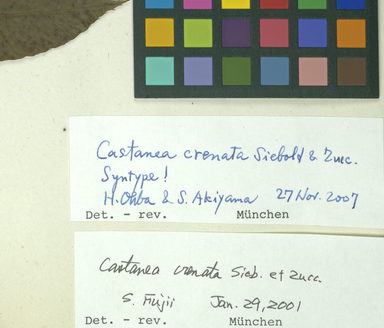 Castanea crenata Siebold & Zucc.
Syntype!
H. Ohba & S. Akiyama 27 Nov. 2007
Det. - rev. München
Castanea crenata Sieb. et Zucc.
S. Fujii Jan. 29, 2001
Det. - rev. München